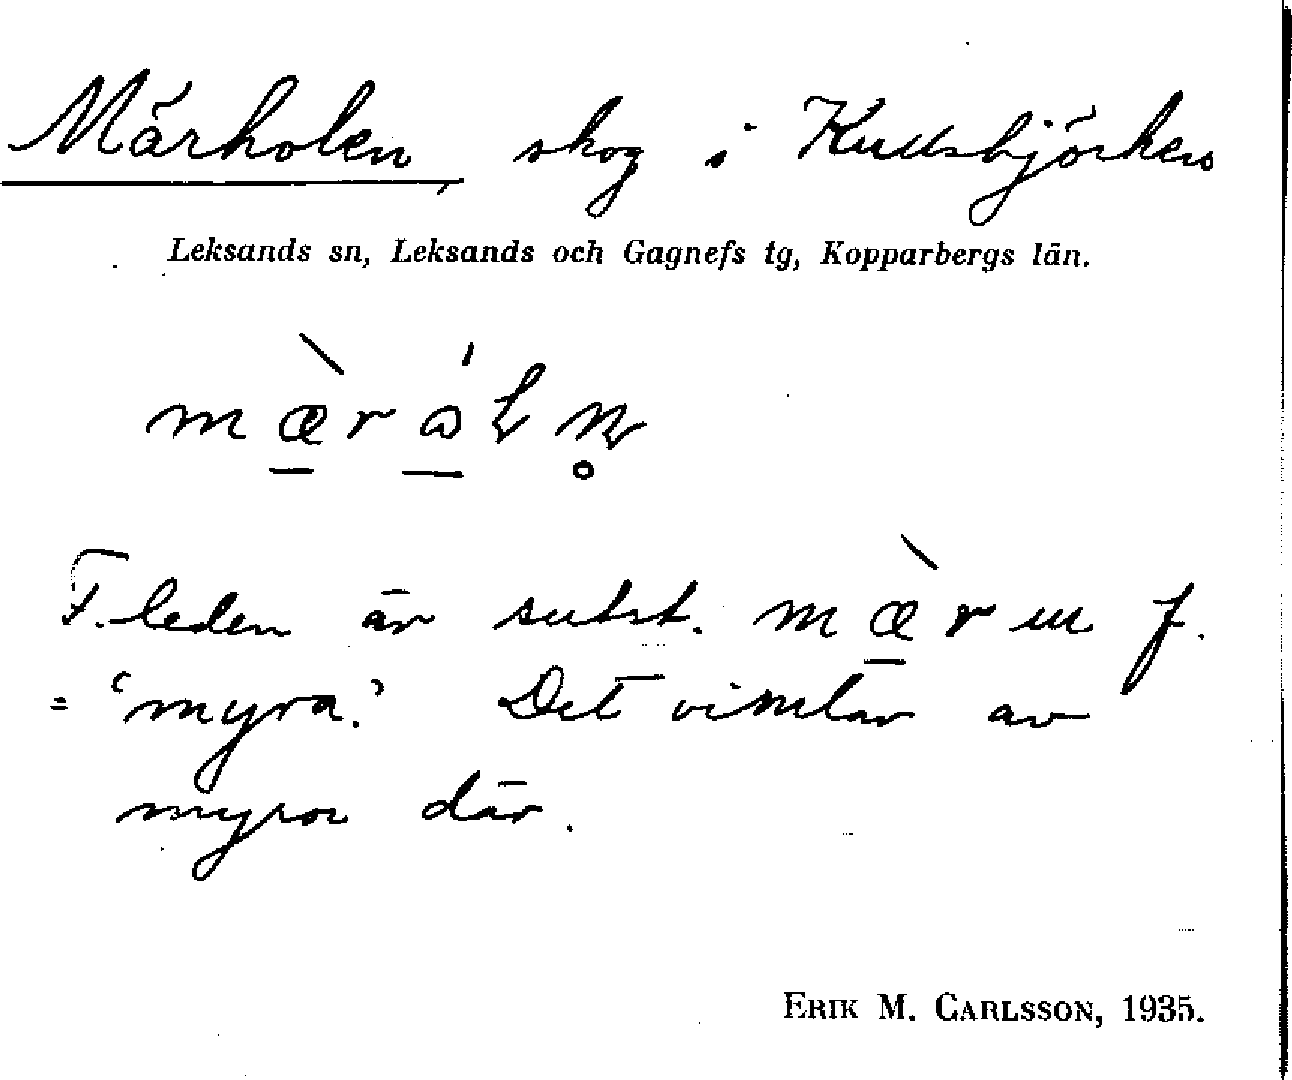 Märholen, skog i Kullsbjörken
Leksands sn, Leksands och Gagnefs tg, Kopparbergs län.
F.leden är subst. mæ̀r f.
= 'myra.' Det vimlar av
myror där.
ERIK M. CARLSSON, 1935.